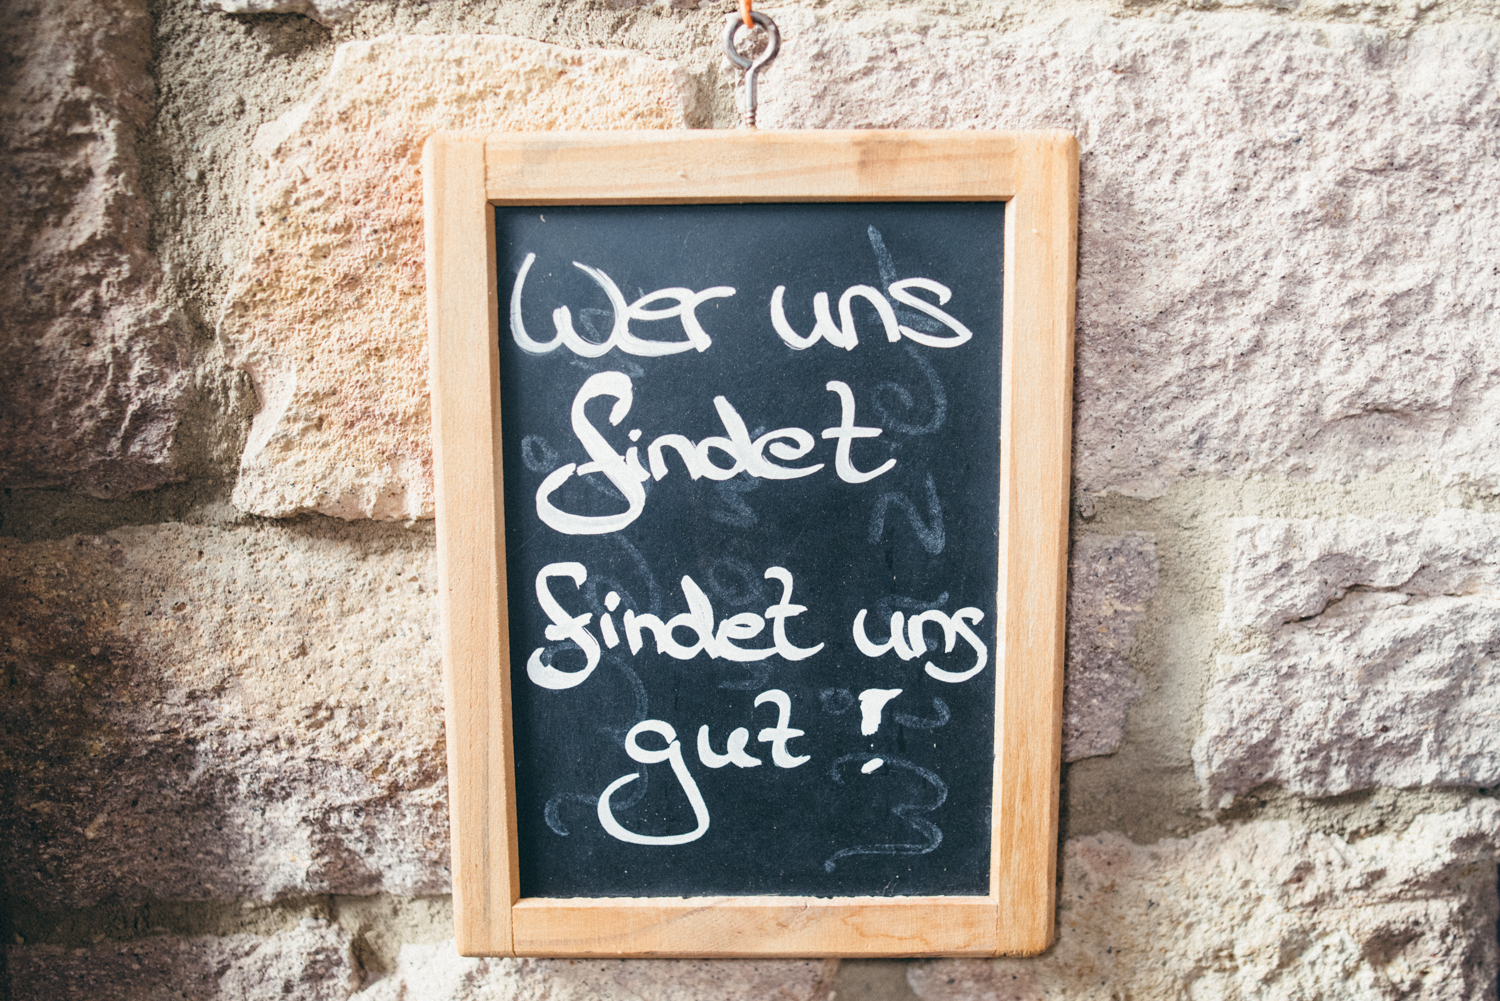 Wer uns
findet
findet uns
gut!